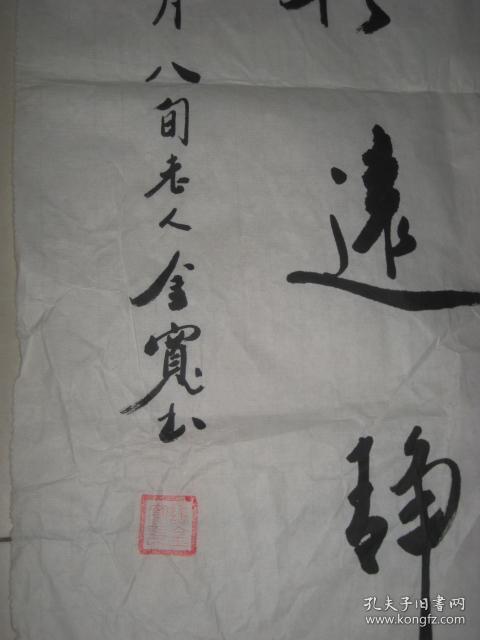 遠静
月八旬老人金寬书
孔夫子旧书网
www.kongfz.com